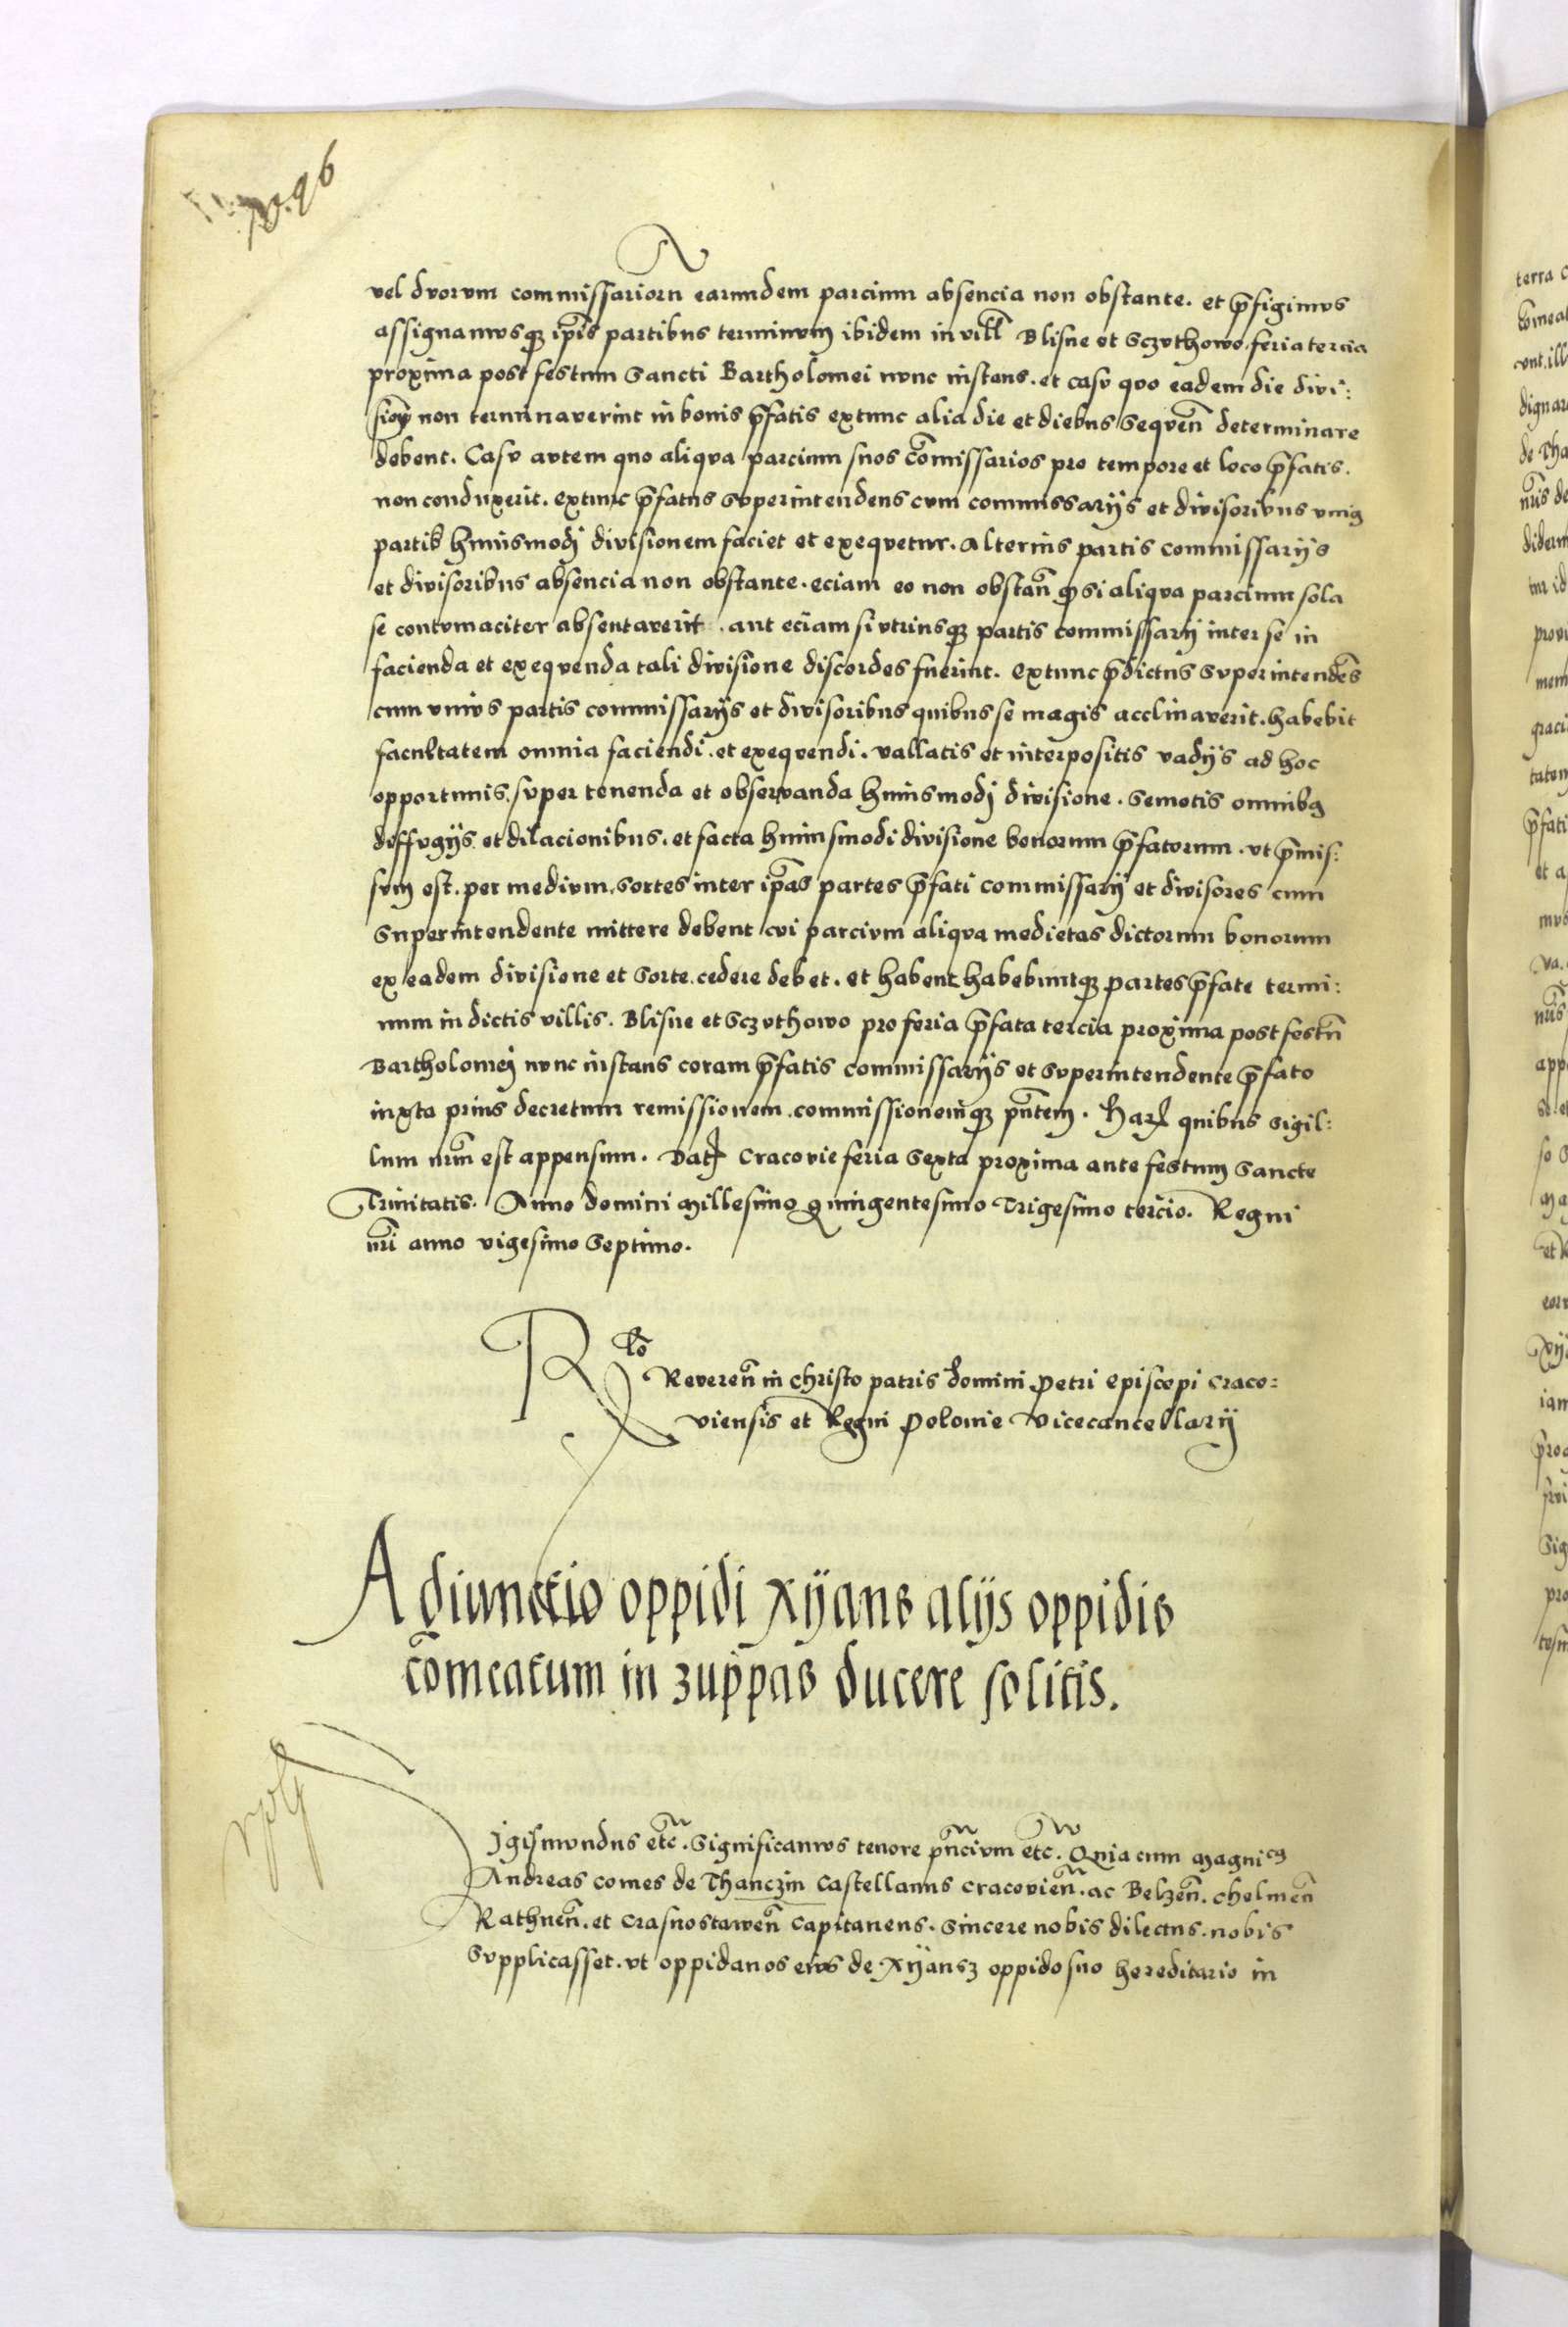 96
vel duorum commissariorũ earundem parcium absencia non obstante. et p̃figimus
assignamusq̃ȝ ip̃is partibus terminum ibidem in vill̃ Blisne et Sczuthowo feria tercia
proxima post festum Sancti Bartholomei nunc instans. et casu quo eadem die divi:
sionẽ non terminaverint in bonis p̃fatis extunc alia die et diebus sequeñ determinare
debent. Casu autem quo aliqua parcium suos cõmissarios pro tempore et loco p̃fatis.
non conduxerit. extunc p̃fatus superintendens cum commissarijs et divisoribus unius
partis huiusmodj divisionem faciet et exequetur. alterius partis commissarijs
et divisoribus absencia non obstante. eciam eo non obstañ q̃ si aliqua parcium sola
se contumaciter absentaverit. aut eciam si utriusqȝ partis commissarij inter se in
facienda et exequenda tali divisione discordes fuerint. extunc p̃dictus superintendẽs
cum unius partis commissarijs et divisoribus quibus se magis acclinaverit. habebit
facultatem omnia faciendi. et exequendi. vallatis et interpositis vadijs ad hoc
opportunis. super tenenda et observanda huiusmodj divisione. semotis omnibꝯ
diffugijs et dilacionibus. et facta huiusmodi divisione bonorum p̃fatorum. ut p̃mis:
sum est. per medium, sortes inter ip̃as partes p̃fati commissarij et divisores cum
Superintendente mittere debent cui parcium aliqua medietas dictorum bonorum
ex eadem divisione et sorte. cedere debet. et habent habebuntqȝ partes p̃fate termi:
num in dictis villis. Blisne et Sczuthowo pro feria p̃fata tercia proxima post festũ
Bartholomej nunc instans coram p̃fatis commissarijs et superintendente p̃fato
iuxta prius decretum remissionem. commissionemqȝ pñtem. Harꝝ quibus sigil:
lum nr̃um est appensum. Datꝭ Cracovie feria sexta proxima ante festum Sancte
Trinitatis. Anno domini Millesimo Quingentesimo Trigesimo tercio. Regni
nr̃i anno vigesimo septimo.
Rlõ Revereñ in Christo patris domini Petri Episcopi Craco:
viensis et Regni Polonie Vicecancellarij
Adiunctio oppidi Xijans alijs oppidis
cõmeatum in zuppas ducere solitis.
Sigismundus etc̃. Significamus tenore pñcium etc̃. Quia cum Magnicus
Andreas comes de Thanczin Castellanus Cracovieñ. ac Belzeñ. Chelmeñ
Rathneñ. et Crasnostaweñ Capitaneus. sincere nobis dilectus. nobis
supplicasset. ut oppidanos eius de Xijansz oppido suo hereditario in